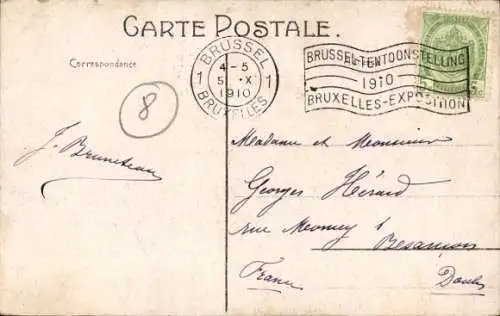 CARTE POSTALE.
Correspondance
BRUSSEL
4-5
1 5 X 1
1910
BRUXELLES
BRUSSEL-TENTOONSTELLING
1910
BRUXELLES-EXPOSITION
8
J. Bruneteau
Madame et Monsieur
Georges Hérard
rue
Besançon
France Doubs